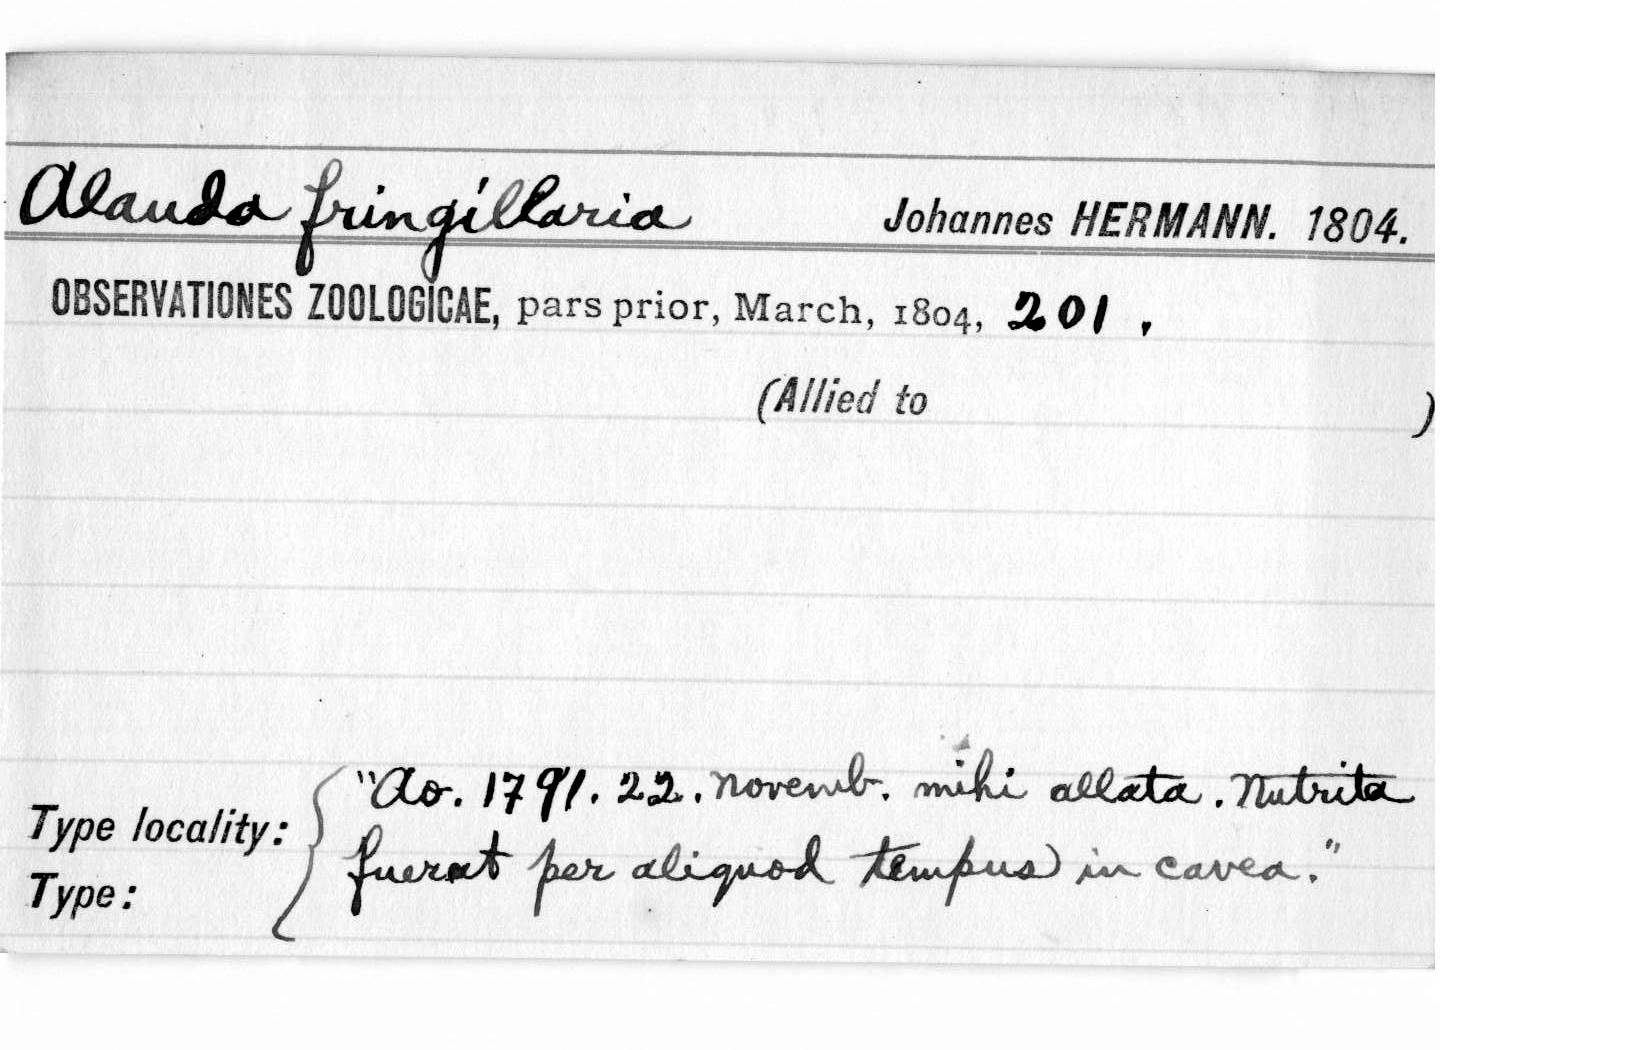 Alauda fringillaria Johannes HERMANN. 1804.
OBSERVATIONES ZOOLOGICAE, pars prior, March, 1804, 201.
(Allied to )
"Ao. 1791. 22. Novemb. mihi allata. Nutrita
Type locality:
fuerat per aliquod tempus in cavea."
Type: